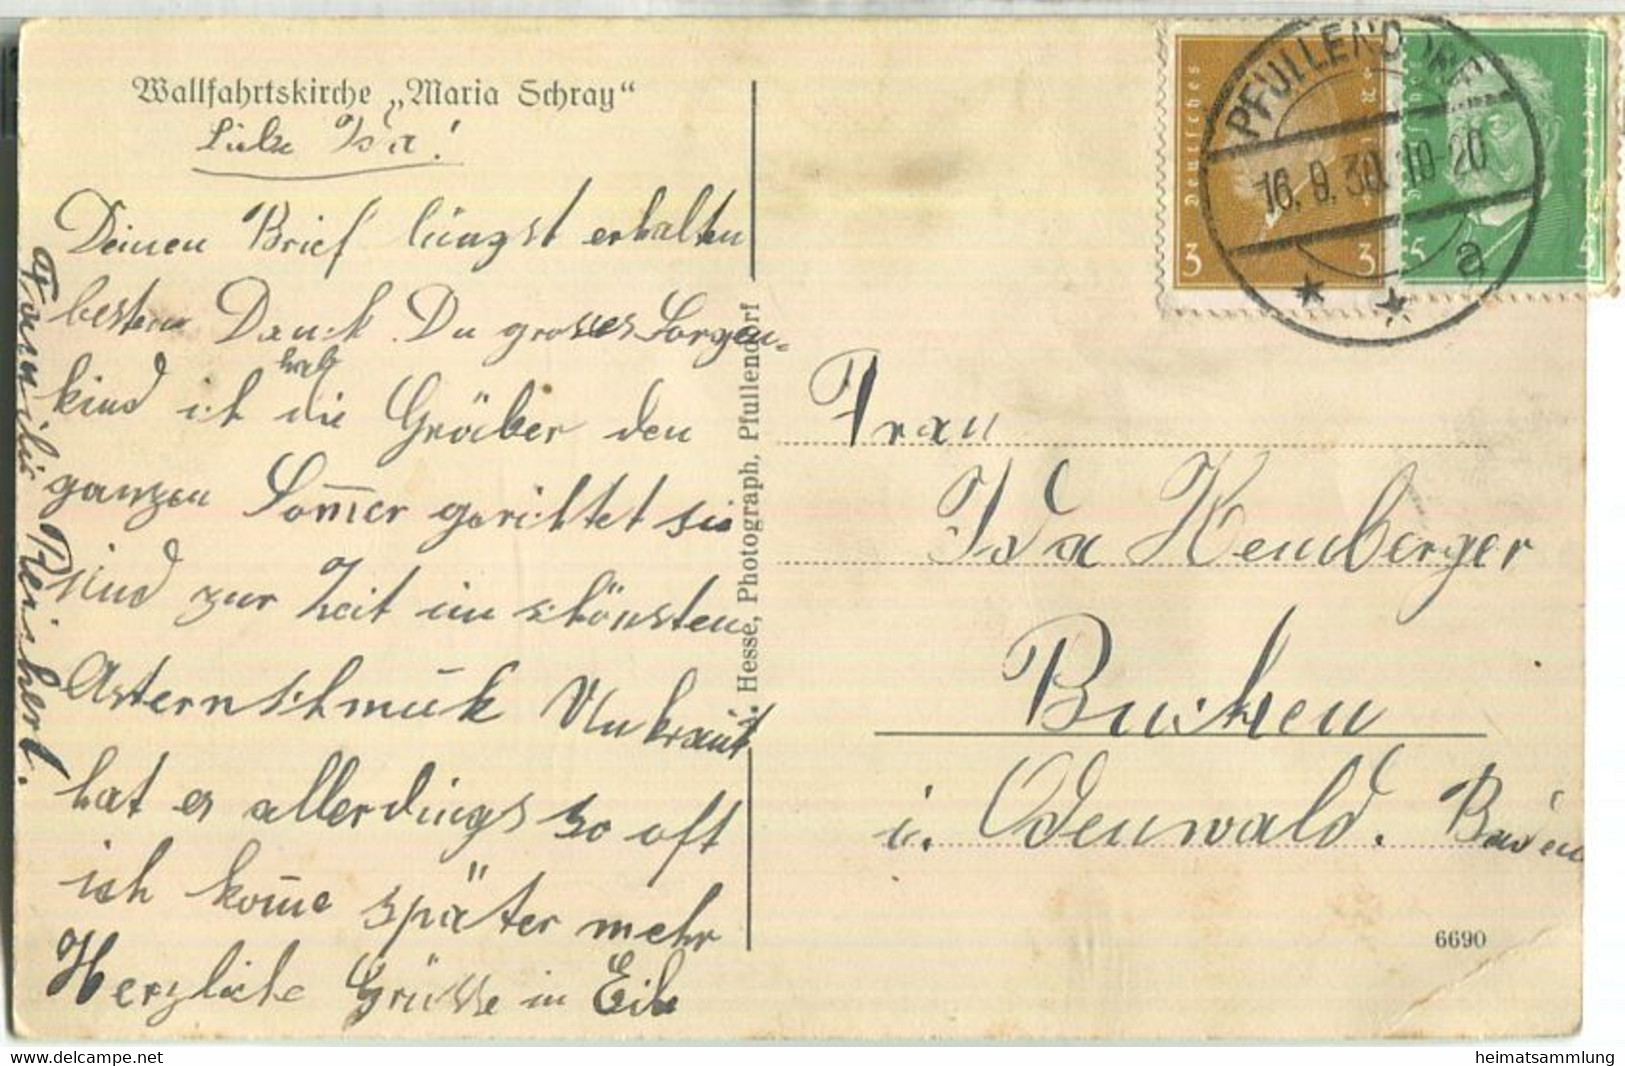 Wallfahrtskirche „Maria Schray"
Liebe Ida!
Deinen Brief längst erhalten
besten Dank. Du grosses Sorgen=
kind ich hab die Gräber den
ganzen Som̅er gerichtet sie
sind zur Zeit im schönsten
Asternschmuck Unkraut
hat es allerdings so oft
ich kom̅e später mehr
Herzliche Grüsse in Eile
Familie Reichert.
J. Hesse, Photograph, Pfullendorf
Deutsches
3 3
5 5
PFULLENDORF
16.9.30. 10-20
a
Frau
Ida Hemberger
Buchen
i. Odenwald. Baden
6690
heimatsammlung